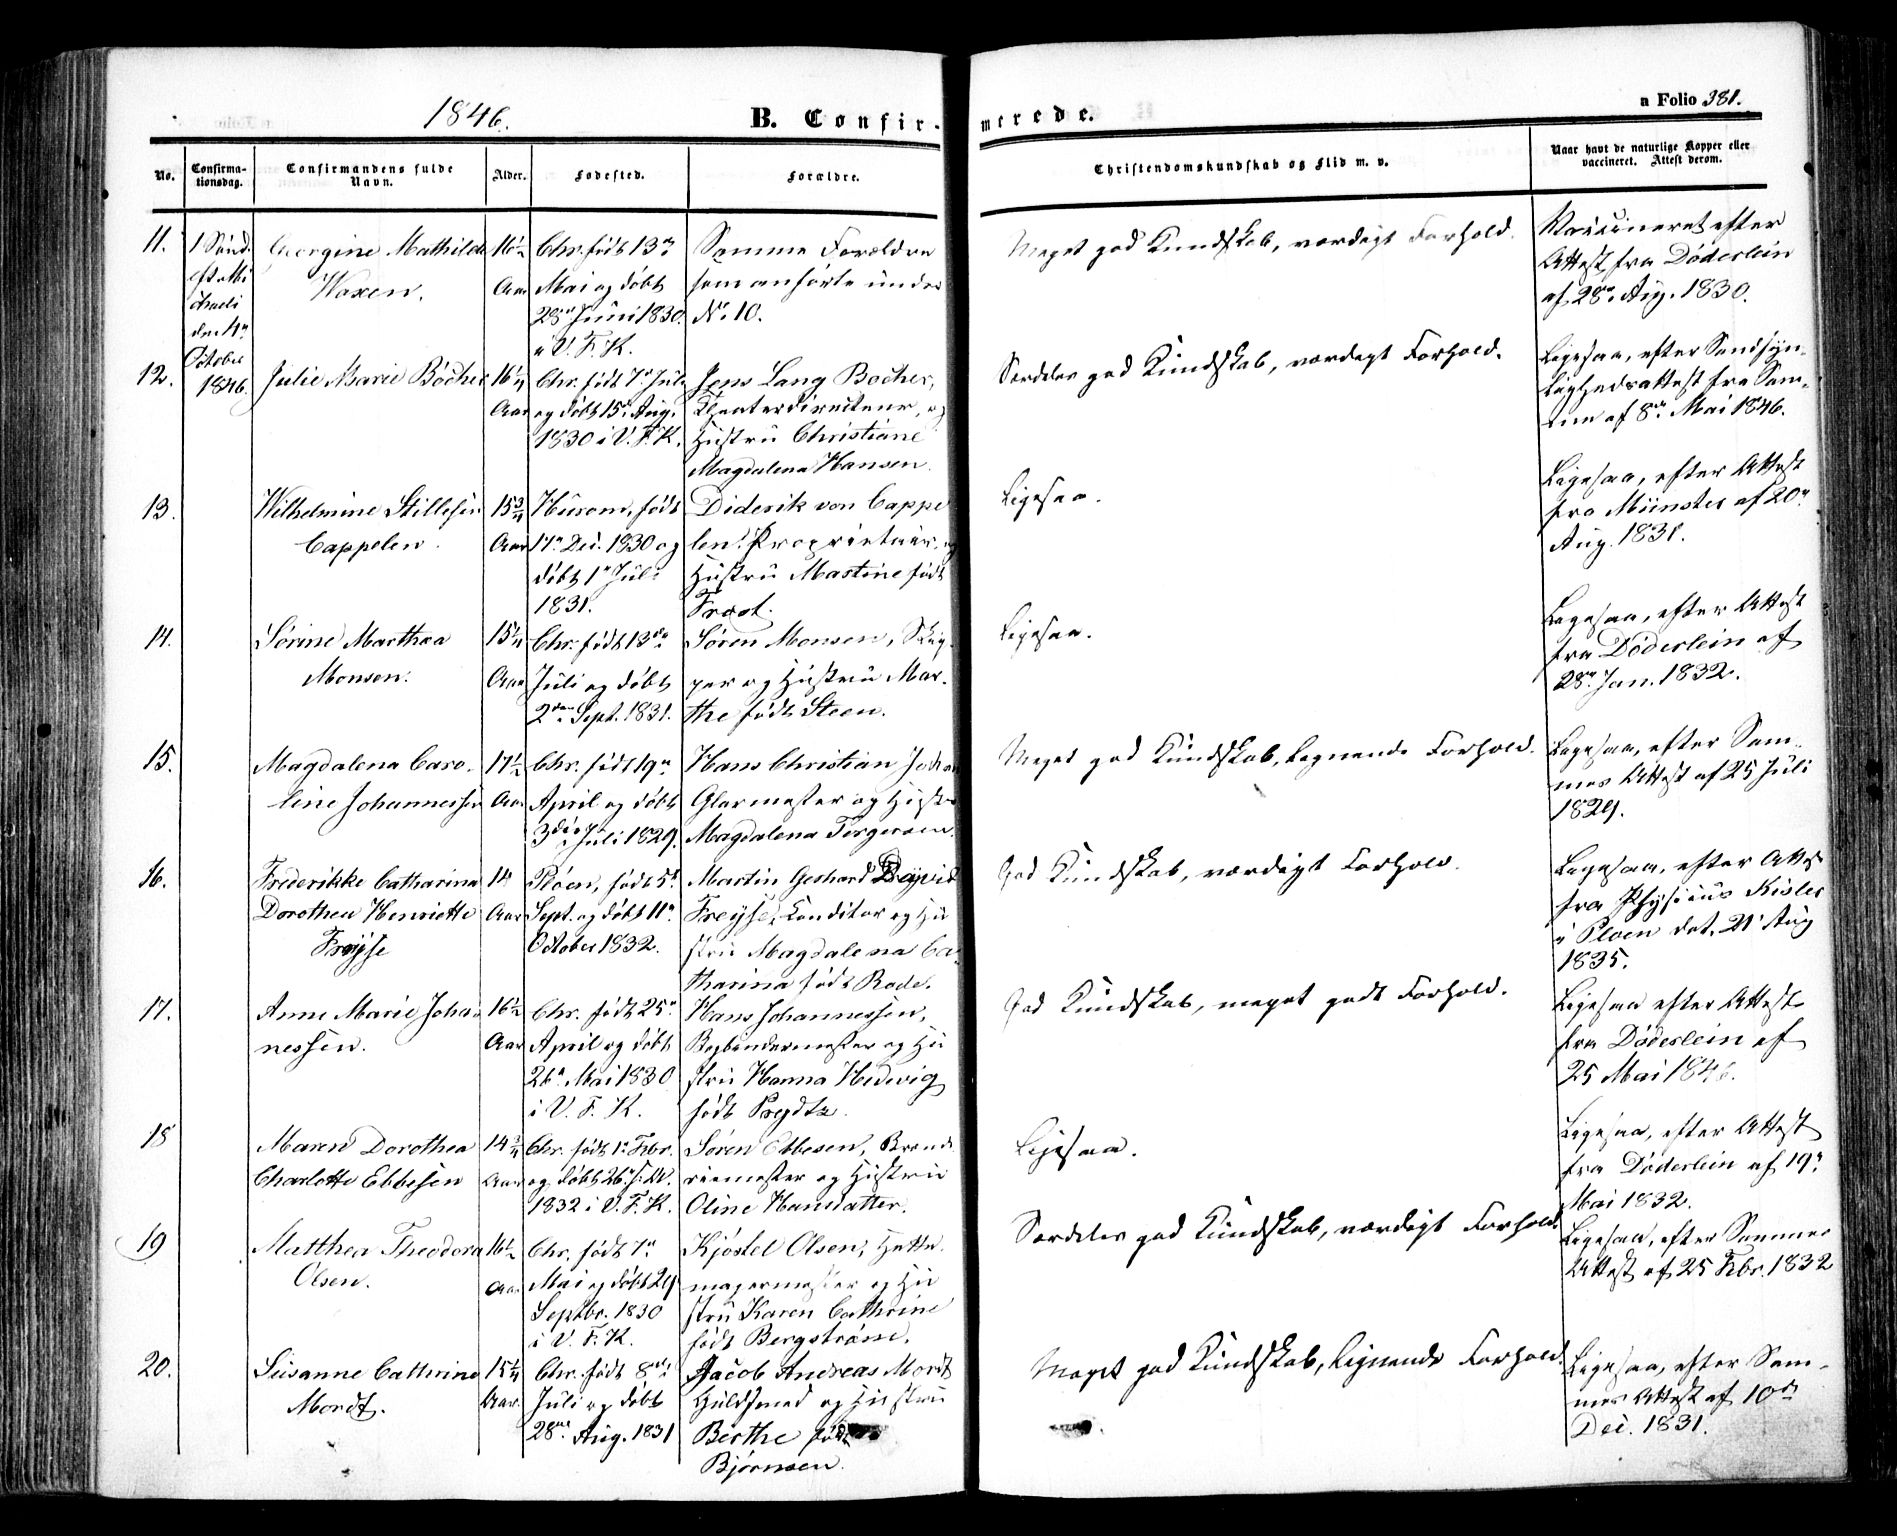 1846.
B. Confir-
merede.
n Folio 381.
No.
Confirma-
tionsdag.
Confirmandens fulde
Navn.
Alder.
Fødested.
Forældre.
Christendomskundskab og Flid m. v.
Naar havt de naturlige Kopper eller
vaccineret. Attest derom.
11.
1 Sønd.
eft. Mi
chaeli
den 11te
October
1846.
Georgine Mathilde
Waxen.
16½
Aar
Chr. født 13de
Mai og døbt
28de Juni 1830.
i V. F. K.
Samme Forældre
som anførte under
No. 10.
Meget god Kundskab, værdigt Forhold.
Vaccineret efter
Attest fra Døderlein
af 28de Aug. 1830.
12.
Julie Marie Böcher
16¼
Aar
Chr. født 7de Juli
og døbt 15de Aug.
1830 i V. F. K.
Jens Lang Bøcher,
Theaterdirecteur, og
Hustru Christiane
Magdalena Hansen.
Særdeles god Kundskab, værdigt Forhold.
Ligesaa, efter Sandsyn-
lighedsattest fra Sam-
me af 8de Mai 1846.
13.
Wilhelmine Stillesen
Cappelen.
15¾
Aar
Hurom, født
17de Dec. 1830 og
døbt 1te Juli
1831.
Diderik von Cappe
len, Proprietair, og
Hustru Mastine født
Frost.
Ligesaa.
Ligesaa, efter Attest
fra Münster af 20de
Aug. 1831.
14.
Sörine Marthea
Monsen.
15¼
Aar
Chr. født 13de
Juli og døbt
2den Sept. 1831.
Søren Monsen, Skip-
per og Hustru Mar-
the født Steen.
Ligesaa.
Ligesaa, efter Attest
fra Døderlein af
28de Jan. 1832.
15.
Magdalena Caro-
line Johannessen
17½
Aar
Chr. født 19de
April og døbt
3die Juli 1829.
Hans Christian Johan
Glarmester og Hustru
Magdalena Torgersen.
Meget god Kundskab, lignende Forhold.
Ligesaa, efter Sam-
mes Attest af 25 Juli
1829.
16.
Frederikke Catharina
Dorothea Henriette
Freyse
14
Aar
Pløen, født 5te
Sept. og døbt 11te
October 1832.
Martin Gerhard David
Freyse, Conditor og Hu
stru Magdalena Ca-
tharina født Rode.
God Kundskab, værdigt Forhold.
Ligesaa, efter Attest
fra Physicus Kisler
i Ploen dat. 21 Aug
1835.
17.
Anne Marie Johan
nessen.
16½
Aar
Chr. født 25de
April og døbt
26de Mai 1830
i V. F. K.
Hans Johannessen,
Bogbindermester og Hu
stru Hanna Hedevig
født Preydtz.
God Kundskab, meget godt Forhold.
Ligesaa efter Attest
fra Døderlein af
25 Mai 1846.
18
Maren Dorothea
Charlotte Ebbesen
14¾
Aar
Chr. født 1te Febr.
og døbt 26de s. M.
1832 i V. F. K.
Søren Ebbesen, Brænde
riemester og Hustru
Oline Hansdatter.
Ligesaa.
Ligesaa, efter Attest
fra Døderlein af 19de
Mai 1832.
19
Matthea Theodora
Olsen.
16½
Aar
Chr. født 7de
Mai og døbt 29
Septbr. 1830
i V. F. K.
Kjøstel Olsen, Hatte-
magermester og Hu
stru Karen Cathrine
født Bergstrøm.
Særdeles god Kundskab, værdigt Forhold
Ligesaa, efter Sammes
Attest af 25 Febr. 1832
20.
Susanne Cathrine
Mordt.
15¼
Aar.
Chr. født 8de
Juli og døbt
28de Aug. 1831
Jacob Andreas Mordt
Guldsmed og Hustru
Berthe født
Bjørnsen.
Meget god Kundskab, lignende Forhold.
Ligesaa, efter Sam-
mes Attest af 10de
Dec. 1831.